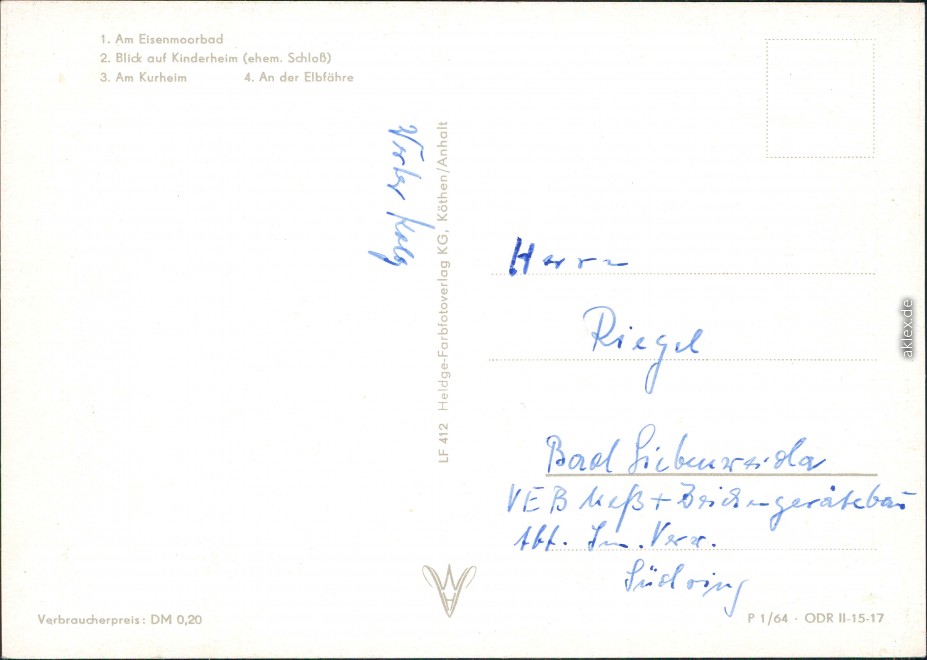 1. Am Eisenmoorbad
2. Blick auf Kinderheim (ehem. Schloß)
3. Am Kurheim 4. An der Elbfähre
LF 412 Heldge-Farbfotoverlag KG, Köthen/Anhalt
Herrn
Riegel
Bad Liebenwerda
VEB Meß + Zeichengerätebau
Abt. Inn. Verw.
Südring
Verbraucherpreis: DM 0,20
P 1/64 · ODR II-15-17
aklex.de